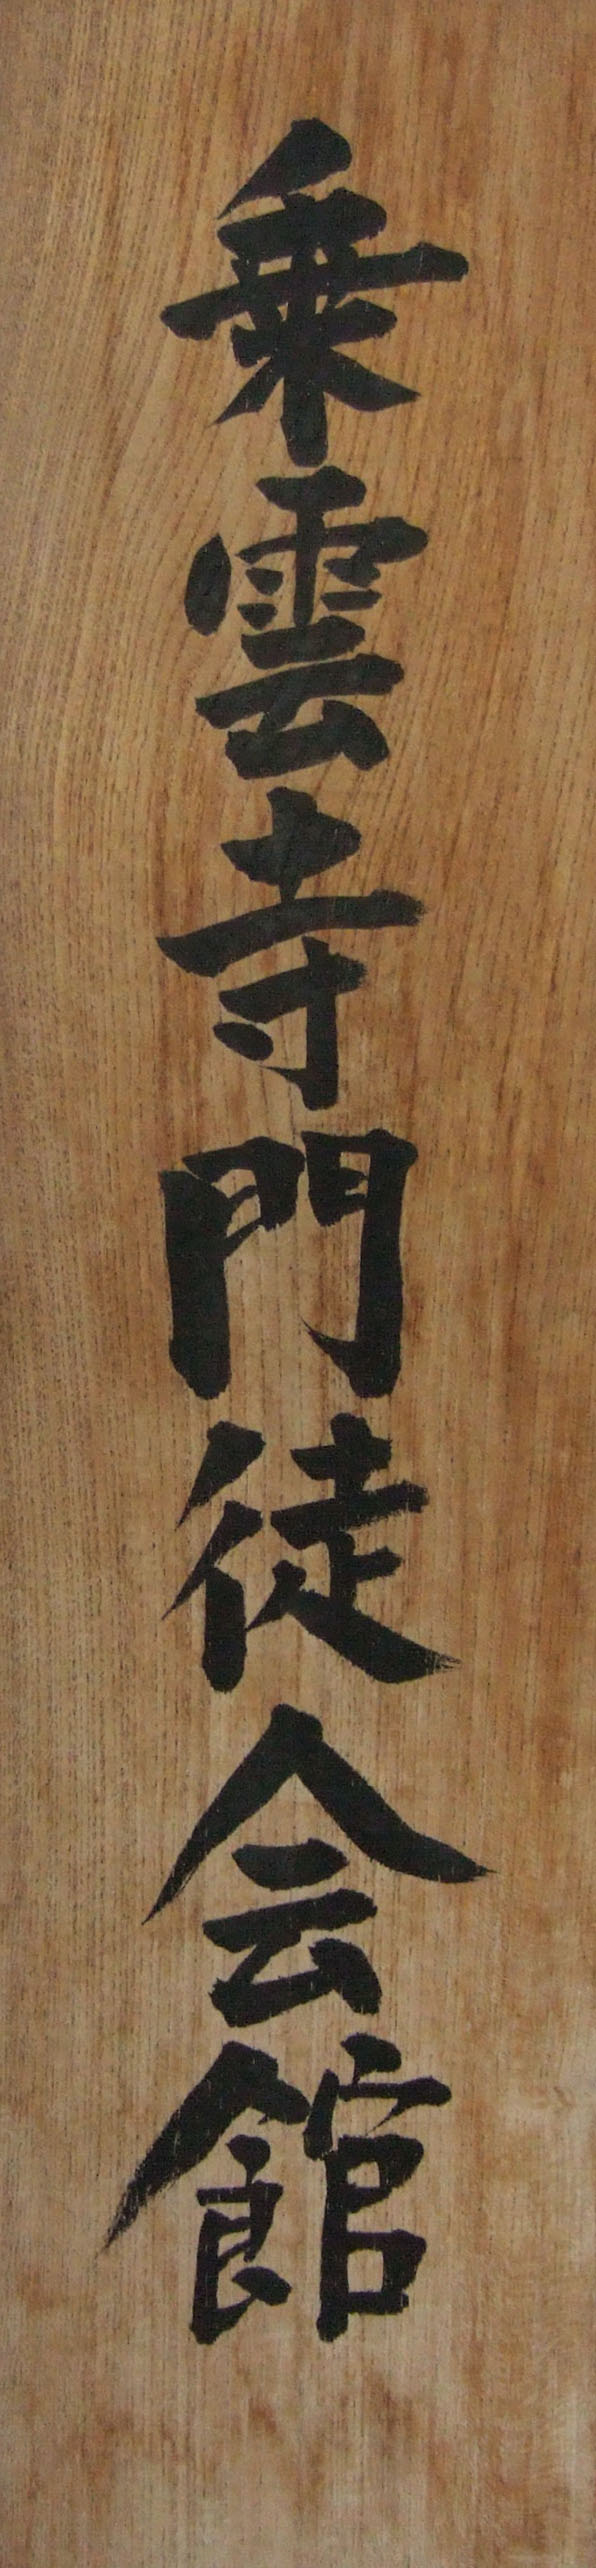 乗雲寺門徒会館